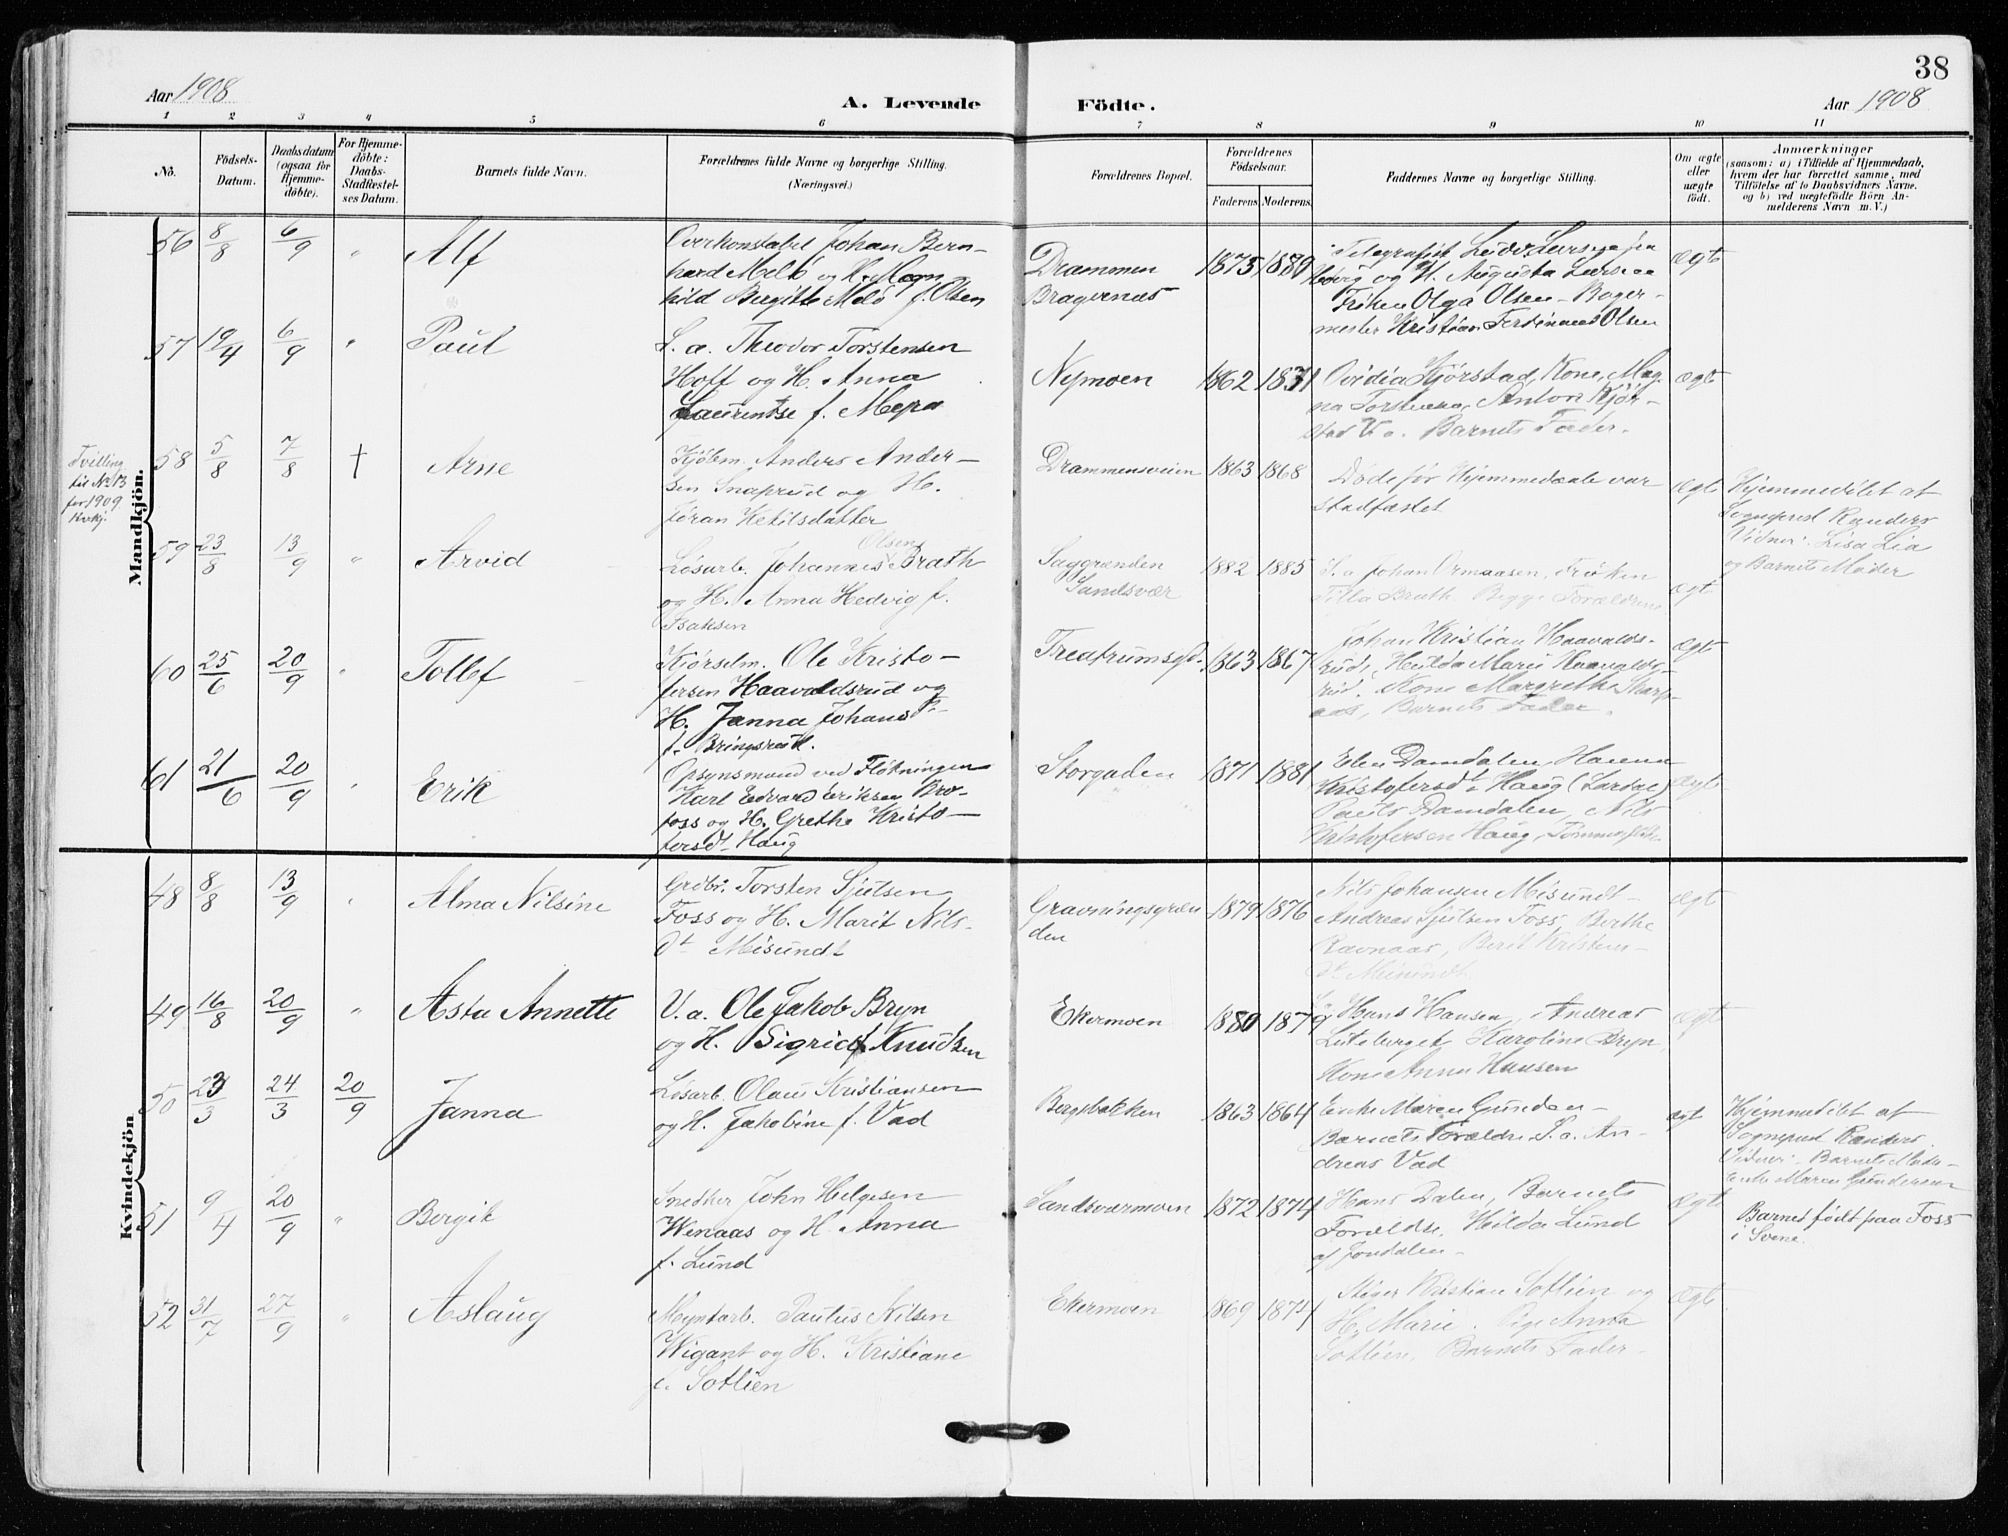 38
Aar 1908
A. Levende Födte.
Aar 1908
1 2 3 4 5 6 7 8 9 10 11
No.
Födsels-
Datum.
Daabsdatum
(ogsaa for
Hjemme-
döbte).
For Hjemme-
döbte:
Daabs-
Stadfæstel-
ses Datum.
Barnets fulde Navn.
Forældrenes fulde Navne og borgerlige Stilling.
(Næringsvei.)
Forældrenes Bopæl.
Forældrenes
Födselsaar.
Faderens Moderens
Faddernes Navne og borgerlige Stilling.
Om ægte
eller
uægte
födt.
Anmærkninger
(saasom: a) i Tilfælde af Hjemmedaab,
hvem der har forrettet samme, med
Tilföielse af to Daabsvidners Navne,
og b) ved uægtefödte Börn An-
melderens Navn m. V.)
Mandkjön.
56 8/8 6/9 Alf
Overkonstabel Johan Bern-
hard Melö og H. Magn
hild Bergitte Melö f. Olsen
Drammen
Bragernæs
1875 1880
Telegrafist
og H. Augusta
Fröken Olga Olsen - Bager-
mester Kristian Ferdinand Olsen
ægte
57 19/4 6/9 " Paul
S. a. Theodor Torstensen
Hoff og H. Anna
Laurentse f. Mepa
Nymoen
1862 1871
Ovidia Kjörstad, Kone, Mag-
na Torstensen, Anton Kjör-
stad V. a. Barnets Fader.
ægte
Tvilling
til No 13
for 1909
Kvkj.
58 5/8 7/8 † Arne
Kjöbm. Anders Ander-
sen Snaprud og H.
Jöran Ketilsdatter
Drammensveien
1863 1868
Döde för Hjemmedaab var
stadfæstet
ægte
Hjemmedöbt af
Sognepresd Randers
Vidner: Lisa Lia
og Barnets Moder
59 23/8 13/9 " Arvid
Lösarb. Johannes Olsen Brath
og H. Anna Hedvig f.
Isaksen
Saggrænden
Sandsvær
1882 1885
S. a. Johan Ormaasen, Fröken
Tilla Brath. Begge Forældrene
ægt
60 25/6 20/9 " Tollef
Kjörselm. Ole Kristo-
fersen Haavaldsrud og
H. Janna Johansd.
f. Bringsrud.
1863 1867
Johan Kristian Haavalds-
rud, Hulda Marie Haavalds-
rud. Kone Margrethe Skarp-
aas, Barnets Fader.
ægte
61 21/6 20/9 " Erik
Opsynsmand ved Flötningen
Karl Edvard Eriksen Bro-
foss og H. Grethe Kristo-
fersdt Haug
Storgaden
1871 1881
Elen Damdalen, Hanna
Kristofersdt Haug
Damdalen, Nils
Kristofersen Haug,
ægte
Kvindekjön
48 8/8 13/9 " Alma Nilsine
Grdbr. Torsten Sjulsen
Foss og H. Marit Nils-
dt Misundt
Gravningsgræn
den
1879 1876
Nils Johansen Misundt-
Andreas Sjulsen Foss, Berthe
Ravnaas, Berit Kristens-
dt Misundt
ægt
49 16/8 20/9 " Asta Annette
V. a. Ole Jakob Bryn
og H. Sigrid f. Knudsen
Ekermoen
1880 1879
Hans Hansen, Andreas
Luteberget, Karoline Bryn,
Kone Anna Hansen
ægt
50 23/3 24/3 20/9 Janna
Lösarb. Olaus Kristiansen
og H. Jakobine f. Vad
Bergsbakken
1863 1864
Enke Maren Gunder-
Barnets Forældre S. a. An-
dreas Vad
ægt
Hjemmedöbt af
Sognepresd Randers.
Vidner: Barnets Mode-
Enke Maren Gundersen
51 9/4 20/9 " Bergit
Snedker John Helgesen
Wenaas og H. Anna
f. Lund
Sandsværmoen
1872 1874
Hans Dalen, Barnets
Forældre, Hilda Lund
af Jondalen-
ægt
Barnet födt paa Foss
i Svene.
52 31/7 27/9 " Aslaug
Myntarb. Paulus Nilsen
Wigant og H. Kristiane
f. Sotlien
Ekermoen
1869 1874
Stiger Kristian Sotlien og
H. Marie. Pige Anna
Sotlien, Barnets Fader-
ægt